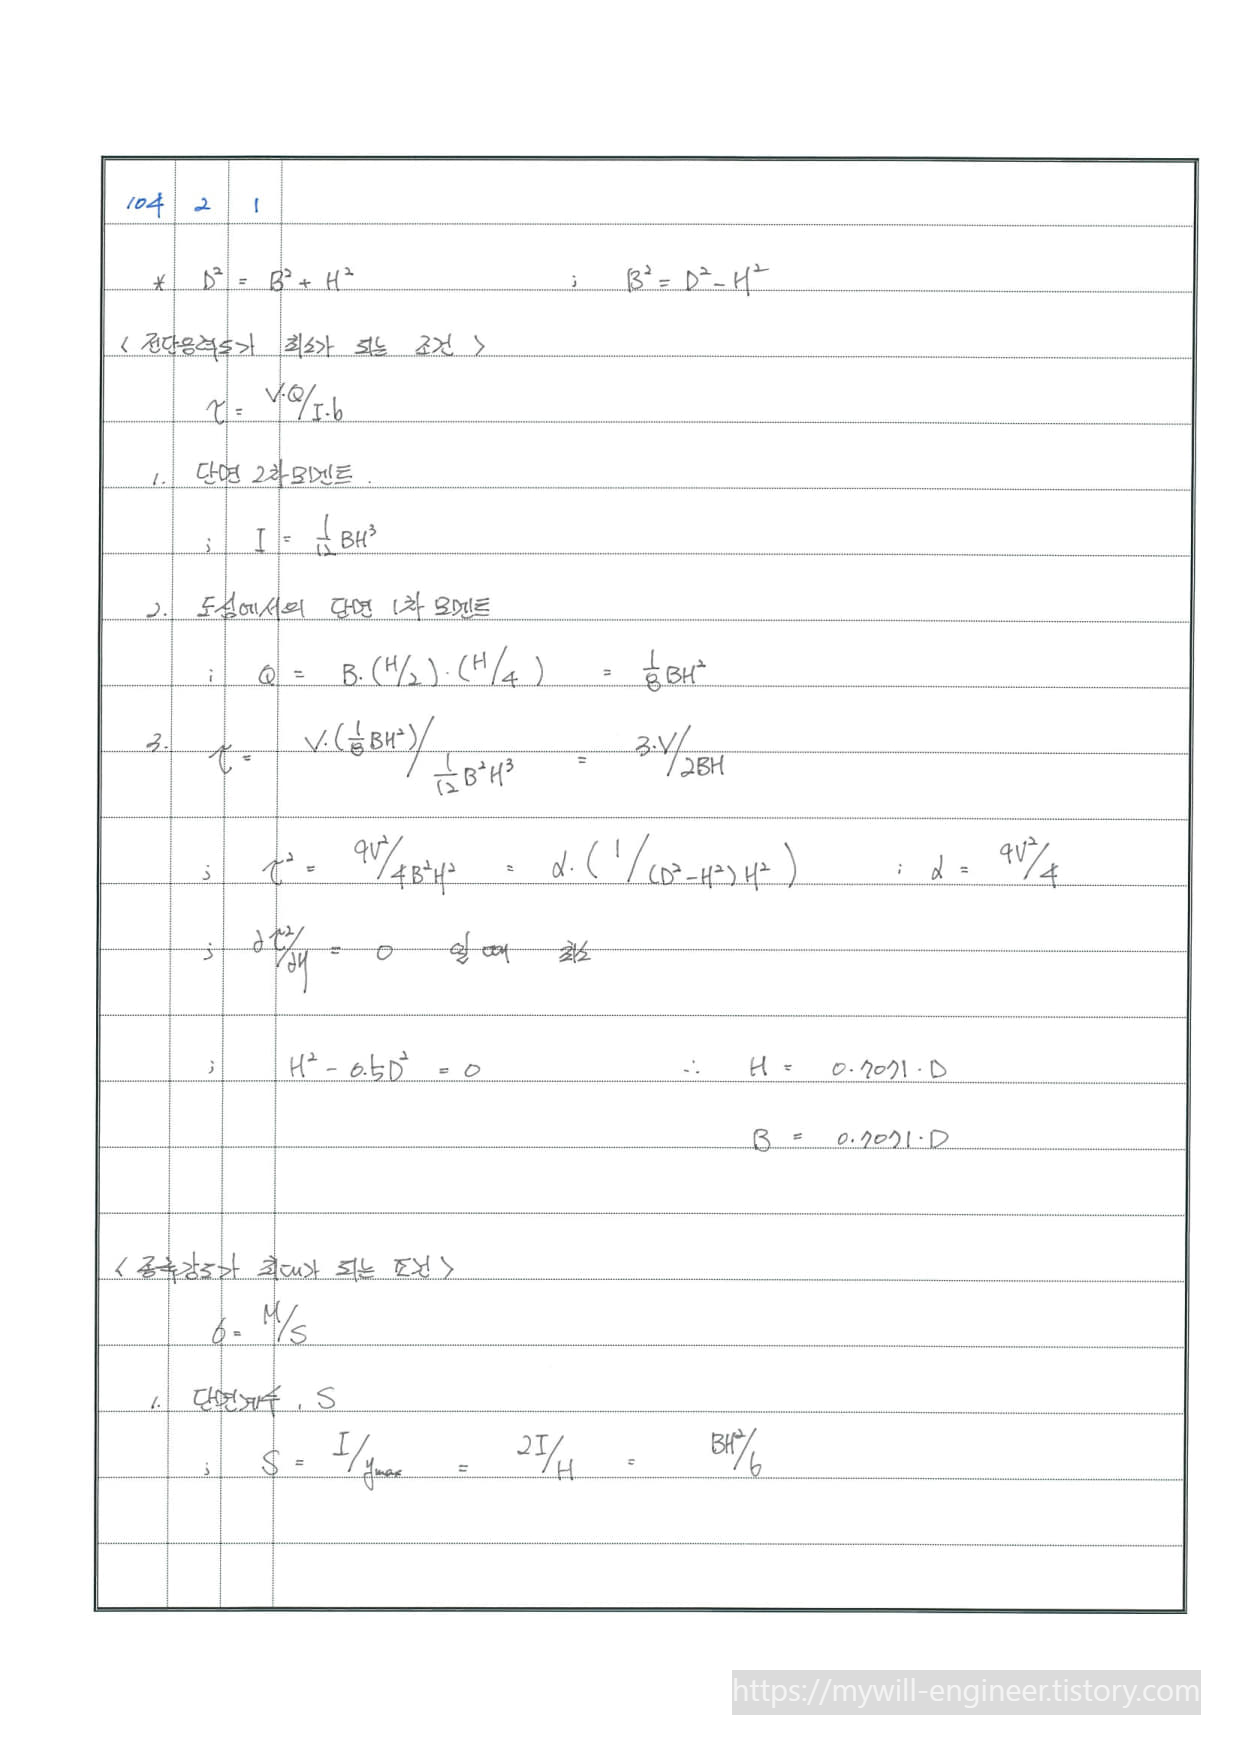 104 2 1
* D² = B² + H² ; B² = D² - H²
< 전단응력도가 최소가 되는 조건 >
τ = V·Q/I·b
1. 단면 2차모멘트.
; I = 1/12 BH³
2. 도심에서의 단면 1차 모멘트
; Q = B·(H/2)·(H/4) = 1/8 BH²
3. τ = V·(1/8 BH²)/1/12 B²H³ = 3·V/2BH
; τ² = 9V²/4B²H² = α·(1/(D²-H²)H²) ; α = 9V²/4
; ∂τ²/∂H = 0 일 때 최소
; H² - 0.5D² = 0 ∴ H = 0.7071·D
B = 0.7071·D
< 종국강도가 최대가 되는 조건 >
σ = M/S
1. 단면계수, S
; S = I/ymax = 2I/H = BH²/6
https://mywill-engineer.tistory.com